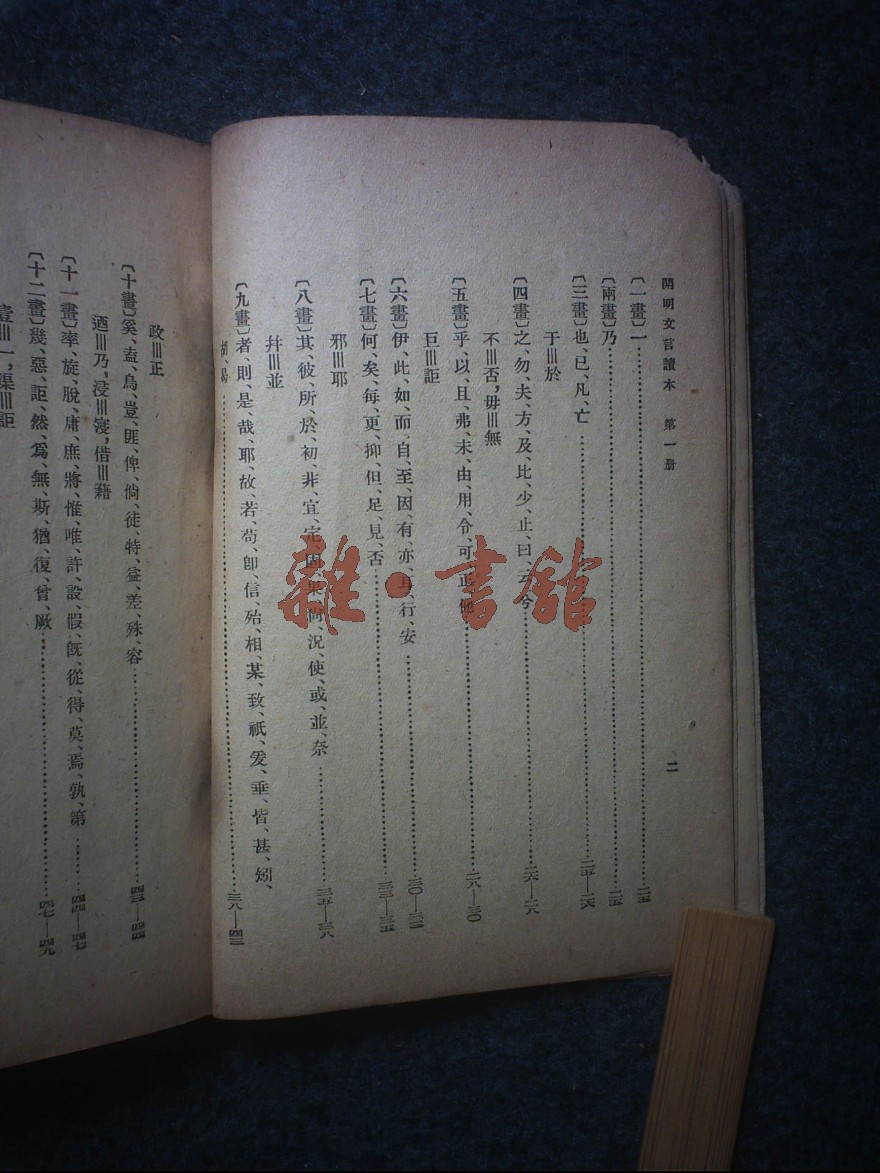 開明文言讀本　第一册
二
〔一畫〕一……二五
〔兩畫〕乃……二五
〔三畫〕也、已、凡、亡……二五—二六
于＝於
〔四畫〕之、勿、夫、方、及、比、少、止、曰、云、兮……二六—二八
不＝否，毋＝無
〔五畫〕乎、以、且、弗、未、由、用、令、可、正、他……二八—三〇
巨＝詎
〔六畫〕伊、此、如、而、自、至、因、有、亦、耳、行、安……三〇—三三
〔七畫〕何、矣、每、更、抑、但、足、見、否……三三—三五
邪＝耶
〔八畫〕其、彼、所、於、初、非、宜、定、固、果、尙、況、使、或、並、奈……三五—三八
幷＝並
〔九畫〕者、則、是、哉、耶、故、若、苟、卽、信、殆、相、某、致、祇、爰、垂、皆、甚、矧、
胡、曷……三八—四三
政＝正
〔十畫〕奚、盍、烏、豈、匪、俾、倘、徒、特、益、差、殊、容……四三—四四
迺＝乃，浸＝寖，借＝藉
〔十一畫〕率、旋、脫、庸、庶、將、惟、唯、許、設、假、旣、從、得、莫、焉、孰、第……四四—四七
〔十二畫〕幾、惡、詎、然、爲、無、斯、猶、復、曾、厥……四七—四九
壹＝一，渠＝詎
雜·書館